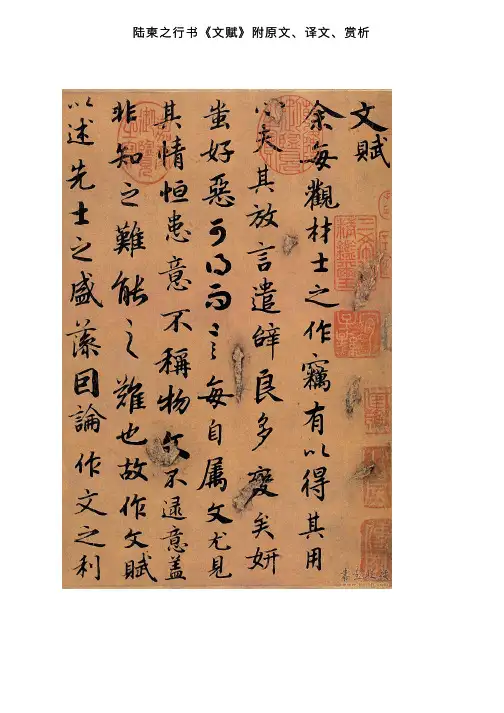 陆柬之行书《文赋》附原文、译文、赏析
文賦
余每觀材士之作竊有以得其用
心夫其放言遣辝良多變矣妍
蚩好惡可得而言每自属文尤見
其情恒患意不稱物文不逮意盖
非知之難能之難也故作文賦
以述先士之盛藻因論作文之利